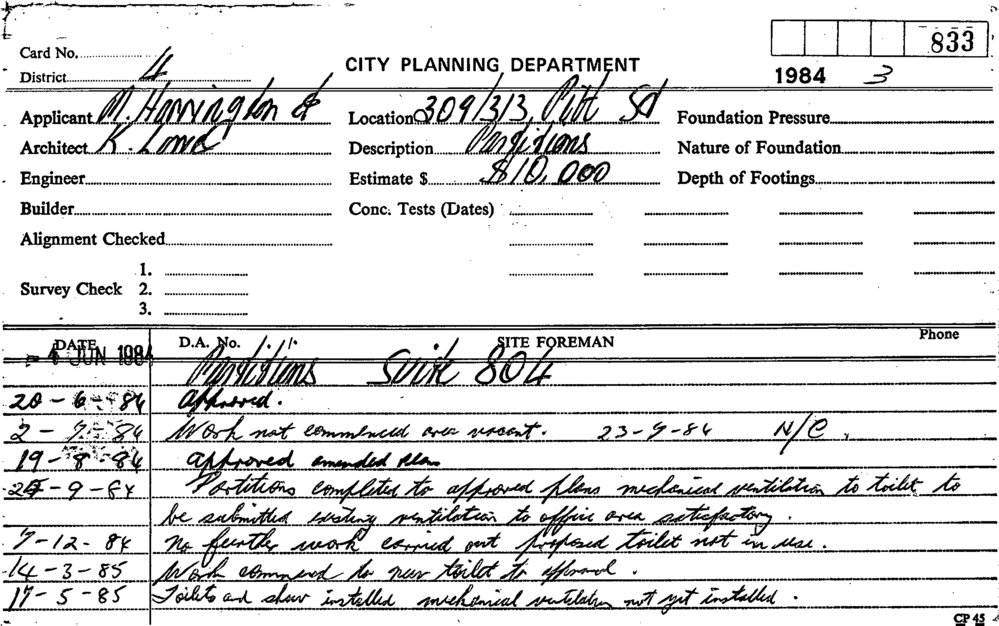 833
Card No.
District 4
CITY PLANNING DEPARTMENT
1984 3
Applicant M. Harrington &
Location 309/313, Pitt St
Foundation Pressure
Architect K. Lowe
Description Partitions
Nature of Foundation
Engineer
Estimate $ $10,000
Depth of Footings
Builder
Conc. Tests (Dates)
Alignment Checked
1.
Survey Check 2.
3.
DATE D.A. No. SITE FOREMAN Phone
- 4 JUN 1984 Partitions Suite 804
20-6-84 Approved.
2-7-84 Work not commenced area vacant. 23-7-84 N/C.
19-8-84 approved amended plan
24-9-84 Partitions completed to approved plans mechanical ventilation to toilet to
be submitted existing ventilation to office area satisfactory.
7-12-84 No further work carried out proposed toilet not in use.
14-3-85 Work commenced to new toilet to approval.
17-5-85 Toilets and show installed mechanical ventilation not yet installed.
CP 45